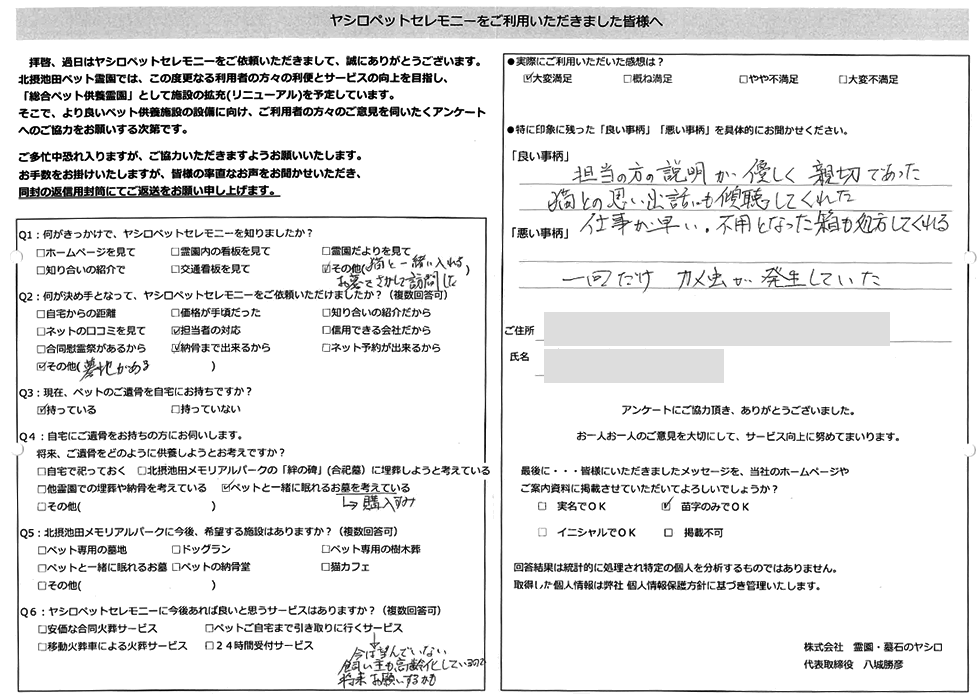 ヤシロペットセレモニーをご利用いただきました皆様へ
拝啓、過日はヤシロペットセレモニーをご依頼いただきまして、誠にありがとうございます。
北摂池田ペット霊園では、この度更なる利用者の方々の利便とサービスの向上を目指し、
「総合ペット供養霊園」として施設の拡充(リニューアル)を予定しています。
そこで、より良いペット供養施設の設備に向け、ご利用者の方々のご意見を伺いたくアンケート
へのご協力をお願いする次第です。
ご多忙中恐れ入りますが、ご協力いただきますようお願いいたします。
お手数をお掛けいたしますが、皆様の率直なお声をお聞かせいただき、
同封の返信用封筒にてご返送をお願い申し上げます。
Q1：何がきっかけで、ヤシロペットセレモニーを知りましたか？
□ホームページを見て □霊園内の看板を見て □霊園だよりを見て
□知り合いの紹介で □交通看板を見て ☑その他(猫と一緒に入れる)
お墓をさがして訪問した
Q2：何が決め手となって、ヤシロペットセレモニーをご依頼いただけましたか？（複数回答可）
□自宅からの距離 □価格が手頃だった □知り合いの紹介だから
□ネットの口コミを見て ☑担当者の対応 □信用できる会社だから
□合同慰霊祭があるから ☑納骨まで出来るから □ネット予約が出来るから
☑その他(墓地がある)
Q3：現在、ペットのご遺骨を自宅にお持ちですか？
☑持っている □持っていない
Q４：自宅にご遺骨をお持ちの方にお伺いします。
将来、ご遺骨をどのように供養しようとお考えですか？
□自宅で祀っておく □北摂池田メモリアルパークの「絆の碑」(合祀墓）に埋葬しようと考えている
□他霊園での埋葬や納骨を考えている ☑ペットと一緒に眠れるお墓を考えている
□その他( ) ↳購入すみ
Q5：北摂池田メモリアルパークに今後、希望する施設はありますか？（複数回答可）
□ペット専用の墓地 □ドッグラン □ペット専用の樹木葬
□ペットと一緒に眠れるお墓 □ペットの納骨堂 □猫カフェ
□その他( )
Q６：ヤシロペットセレモニーに今後あれば良いと思うサービスはありますか？（複数回答可）
□安価な合同火葬サービス □ペットご自宅まで引き取りに行くサービス
□移動火葬車による火葬サービス □２４時間受付サービス
↓
今は望んでいない
飼い主も高齢化しているので
将来お願いするかも
●実際にご利用いただいた感想は？
☑大変満足 □概ね満足 □やや不満足 □大変不満足
●特に印象に残った「良い事柄」「悪い事柄」を具体的にお聞かせください。
「良い事柄」
担当の方の説明が優しく親切であった
猫との思い出話にも傾聴してくれた
仕事が早い。不用となった箱も処方してくれる
「悪い事柄」
一回だけ カメ虫が発生していた
ご住所
氏名
アンケートにご協力頂き、ありがとうございました。
お一人お一人のご意見を大切にして、サービス向上に努めてまいります。
最後に・・・皆様にいただきましたメッセージを、当社のホームページや
ご案内資料に掲載させていただいてよろしいでしょうか？
□ 実名でＯＫ ☑ 苗字のみでＯＫ
□ イニシャルでＯＫ □ 掲載不可
回答結果は統計的に処理され特定の個人を分析するものではありません。
取得した個人情報は弊社 個人情報保護方針に基づき管理いたします。
株式会社 霊園・墓石のヤシロ
代表取締役 八城勝彦